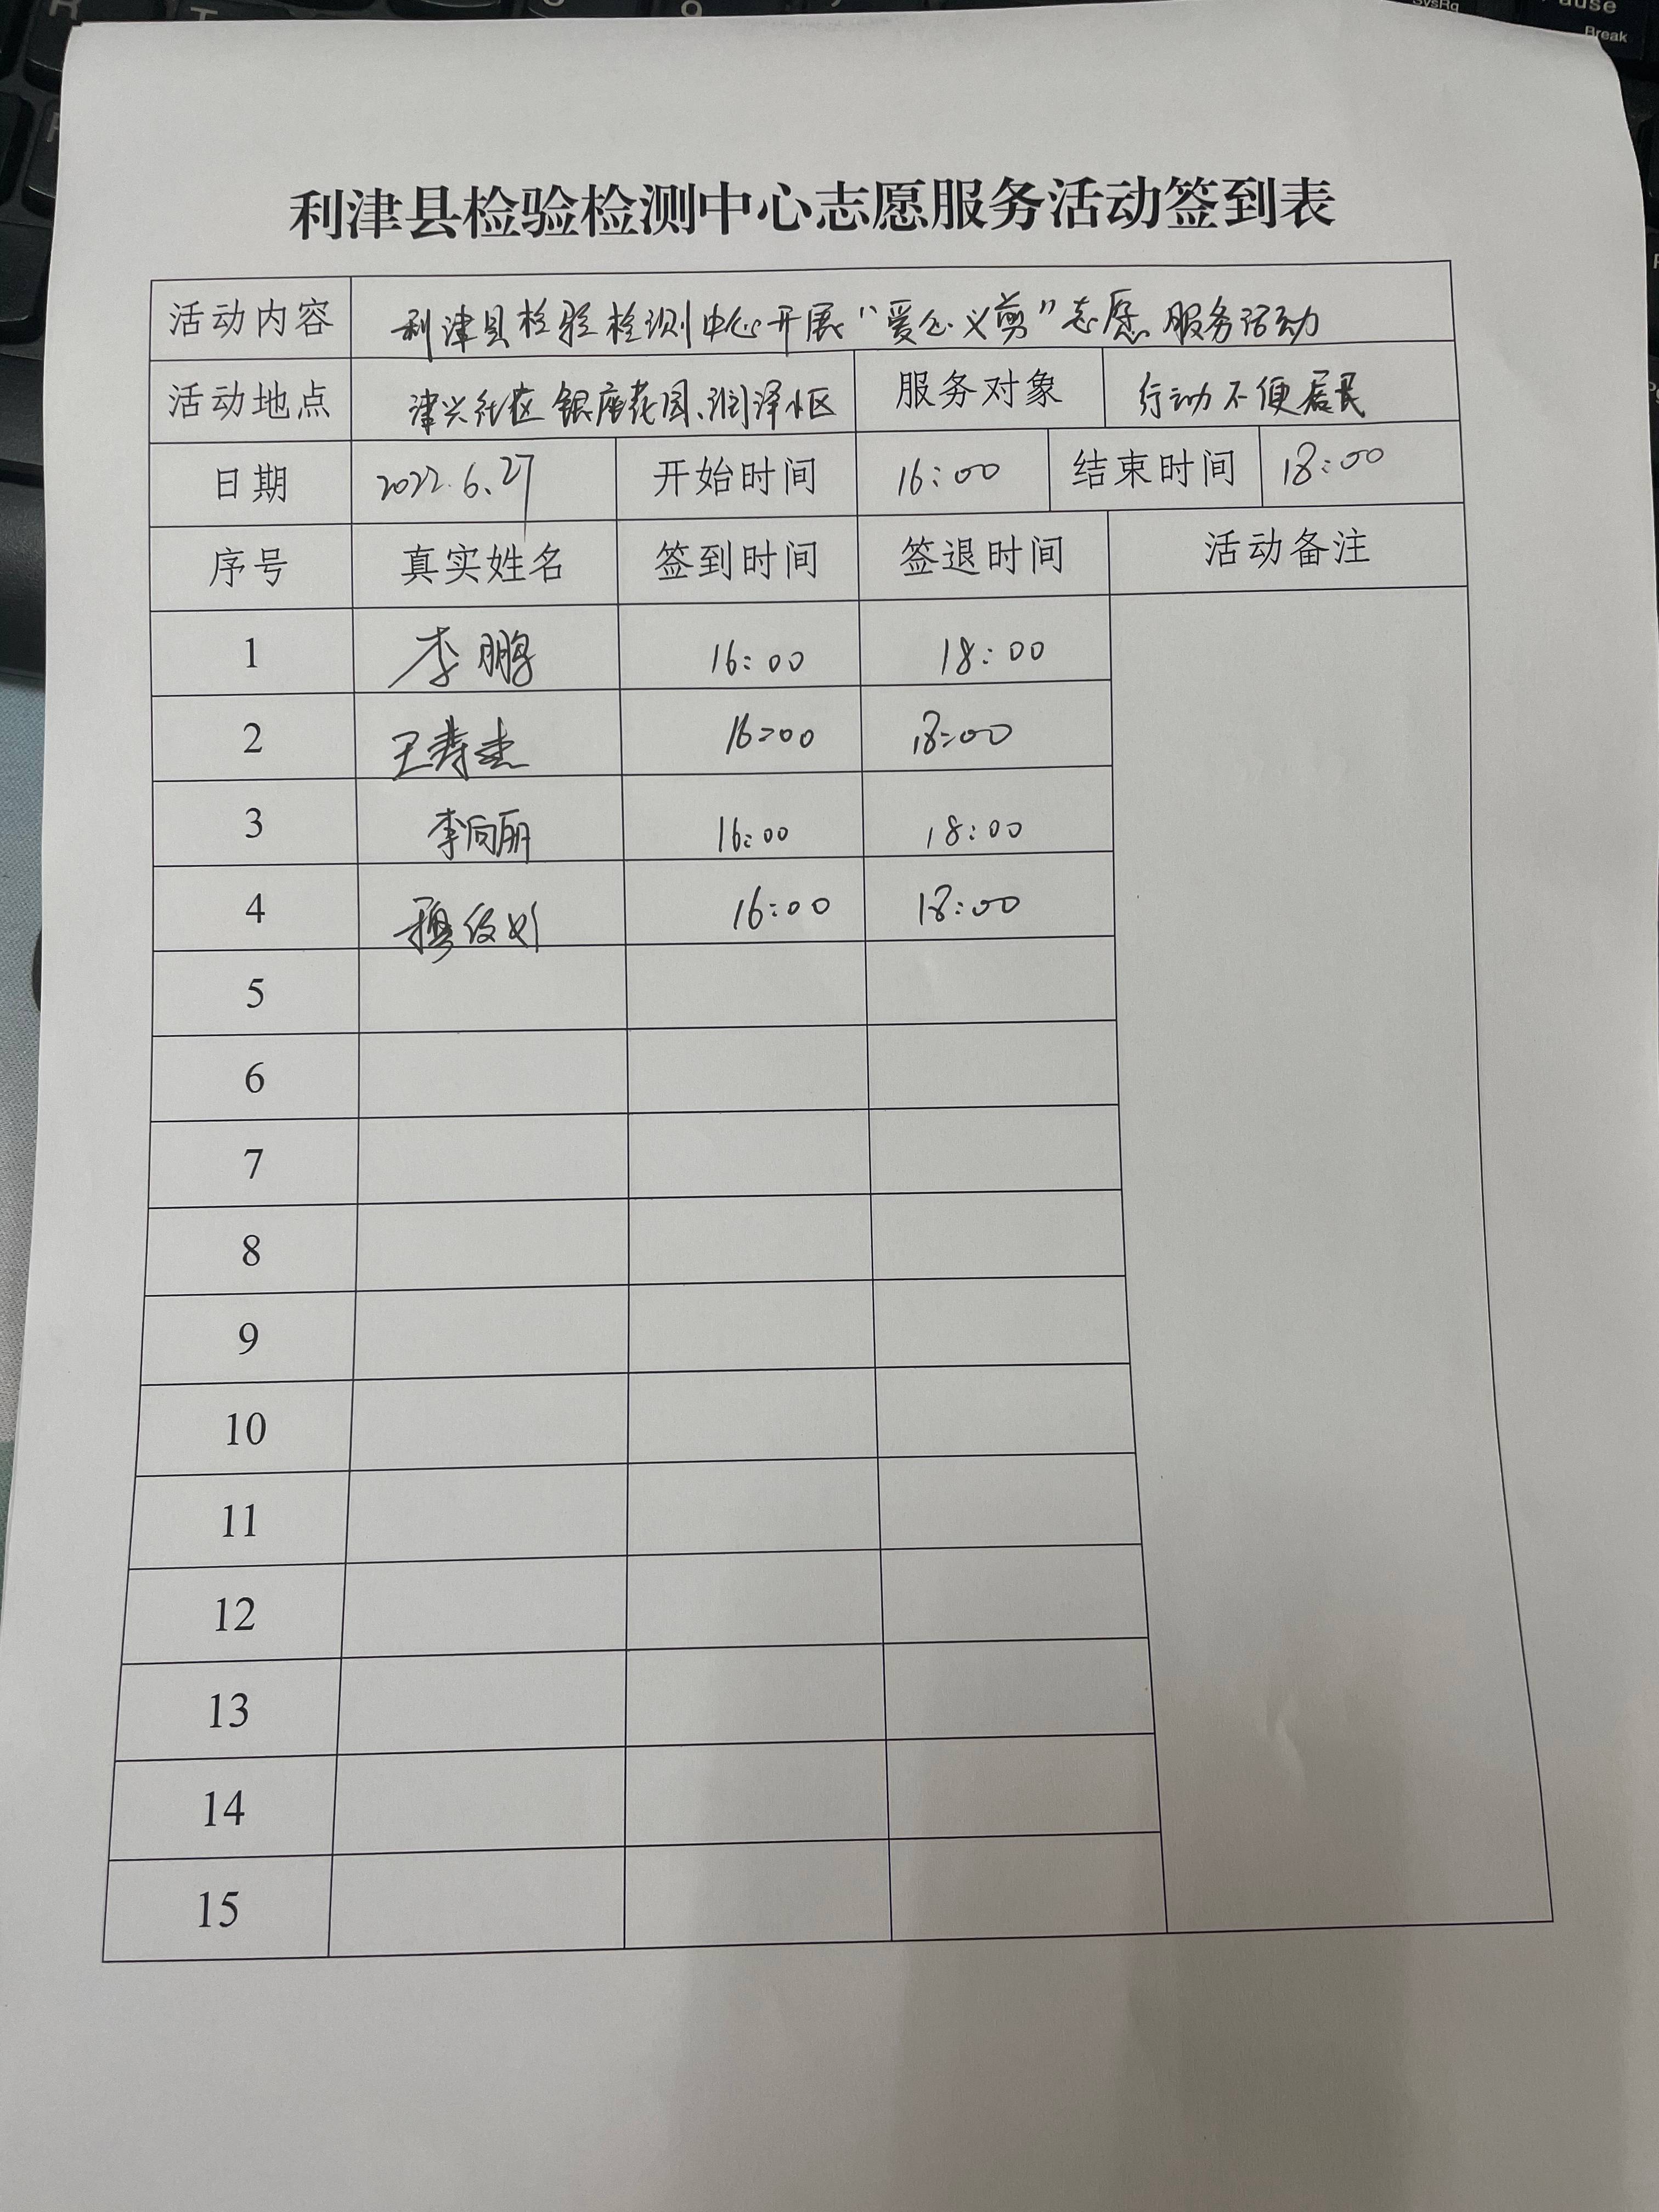 利津县检验检测中心志愿服务活动签到表
活动内容 利津县检验检测中心开展“爱心义剪”志愿服务活动
活动地点 津兴社区银座花园、润泽小区 服务对象 行动不便居民
日期 2022.6.27 开始时间 16:00 结束时间 18:00
序号 真实姓名 签到时间 签退时间 活动备注
1 李鹏 16:00 18:00
2 王寿杰 16:00 18:00
3 李向丽 16:00 18:00
4 16:00 18:00
5
6
7
8
9
10
11
12
13
14
15
R
T
9
SysRq
Pause
Break